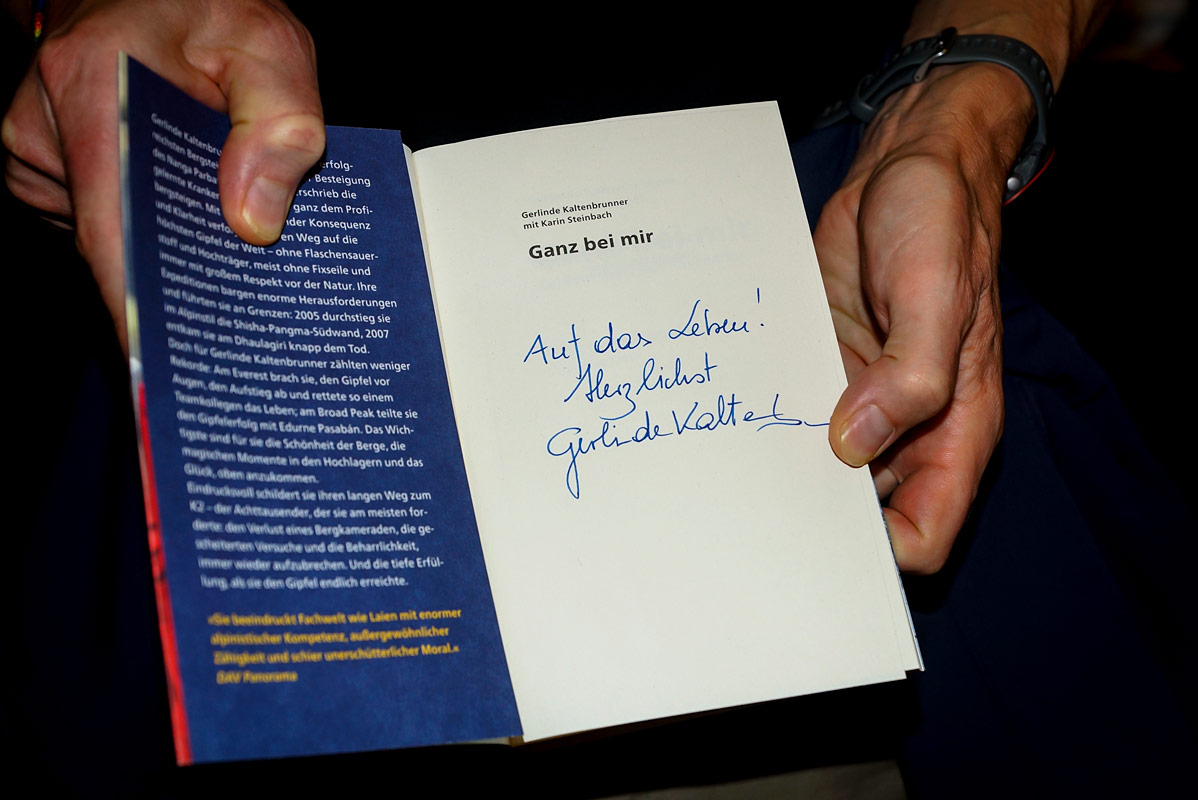 Gerlinde Kaltenbru
erfolg-
reichsten Bergstei
Besteigung
des Nanga Parba
erschrieb die
gelernte Kranken
ganz dem Profi-
bergsteigen. Mit
nder Konsequenz
und Klarheit verfo
en Weg auf die
höchsten Gipfel der Welt – ohne Flaschensauer-
stoff und Hochträger, meist ohne Fixseile und
immer mit großem Respekt vor der Natur. Ihre
Expeditionen bargen enorme Herausforderungen
und führten sie an Grenzen: 2005 durchstieg sie
im Alpinstil die Shisha-Pangma-Südwand, 2007
entkam sie am Dhaulagiri knapp dem Tod.
Doch für Gerlinde Kaltenbrunner zählten weniger
Rekorde: Am Everest brach sie, den Gipfel vor
Augen, den Aufstieg ab und rettete so einem
Teamkollegen das Leben; am Broad Peak teilte sie
den Gipfelerfolg mit Edurne Pasabán. Das Wich-
tigste sind für sie die Schönheit der Berge, die
magischen Momente in den Hochlagern und das
Glück, oben anzukommen.
Eindrucksvoll schildert sie ihren langen Weg zum
K2 – der Achttausender, der sie am meisten for-
derte: den Verlust eines Bergkameraden, die ge-
scheiterten Versuche und die Beharrlichkeit,
immer wieder aufzubrechen. Und die tiefe Erfül-
lung, als sie den Gipfel endlich erreichte.
»Sie beeindruckt Fachwelt wie Laien mit enormer
alpinistischer Kompetenz, außergewöhnlicher
Zähigkeit und schier unerschütterlicher Moral.«
DAV Panorama
Gerlinde Kaltenbrunner
mit Karin Steinbach
Ganz bei mir
Auf das Leben!
Herzlichst
Gerlinde Kalten